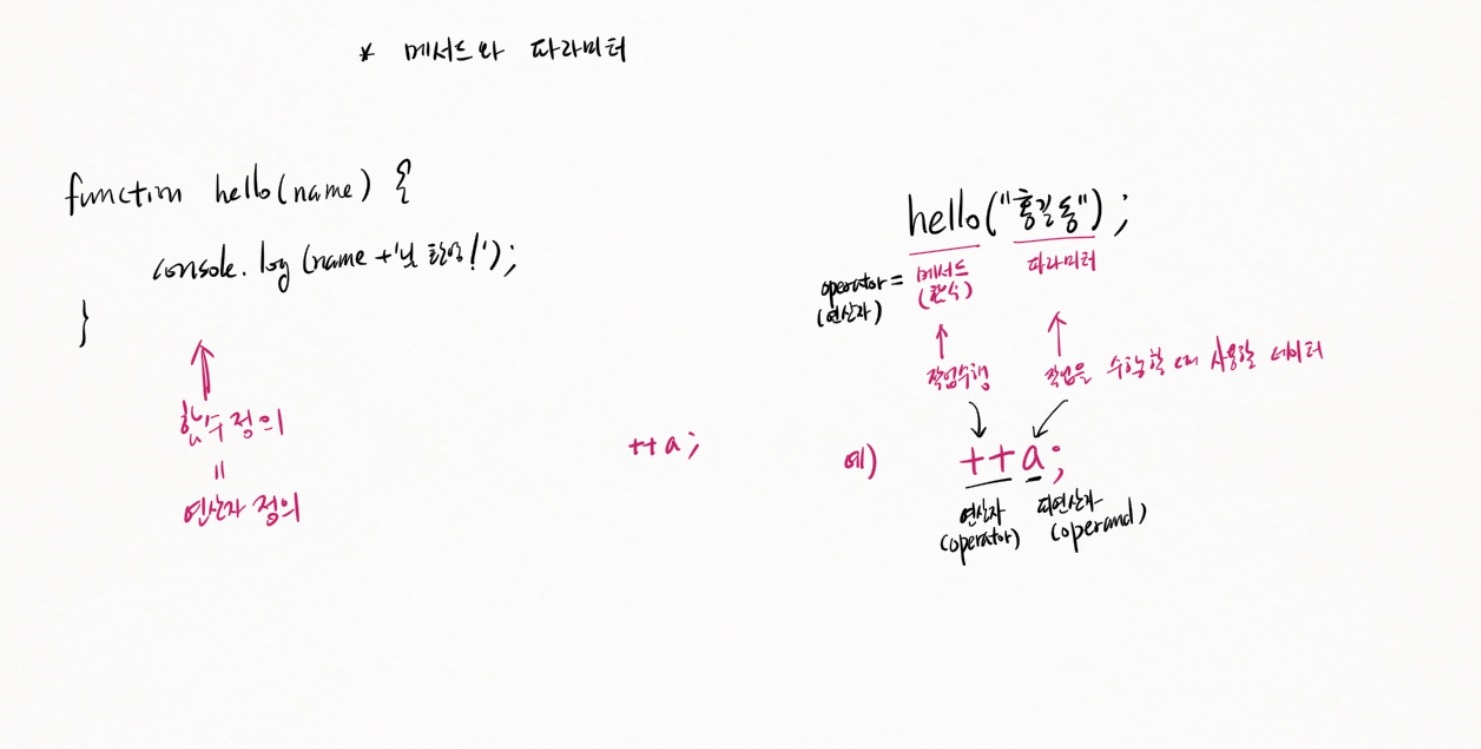 * 메서드와 파라미터
function hello(name) {
console.log(name +'님 환영!');
}
함수 정의
=
연산자 정의
++a;
hello("홍길동");
operator = 메서드 파라미터
(연산자) (함수)
작업수행 작업을 수행할 때 사용할 데이터
예) ++a;
연산자 피연산자
(operator) (operand)